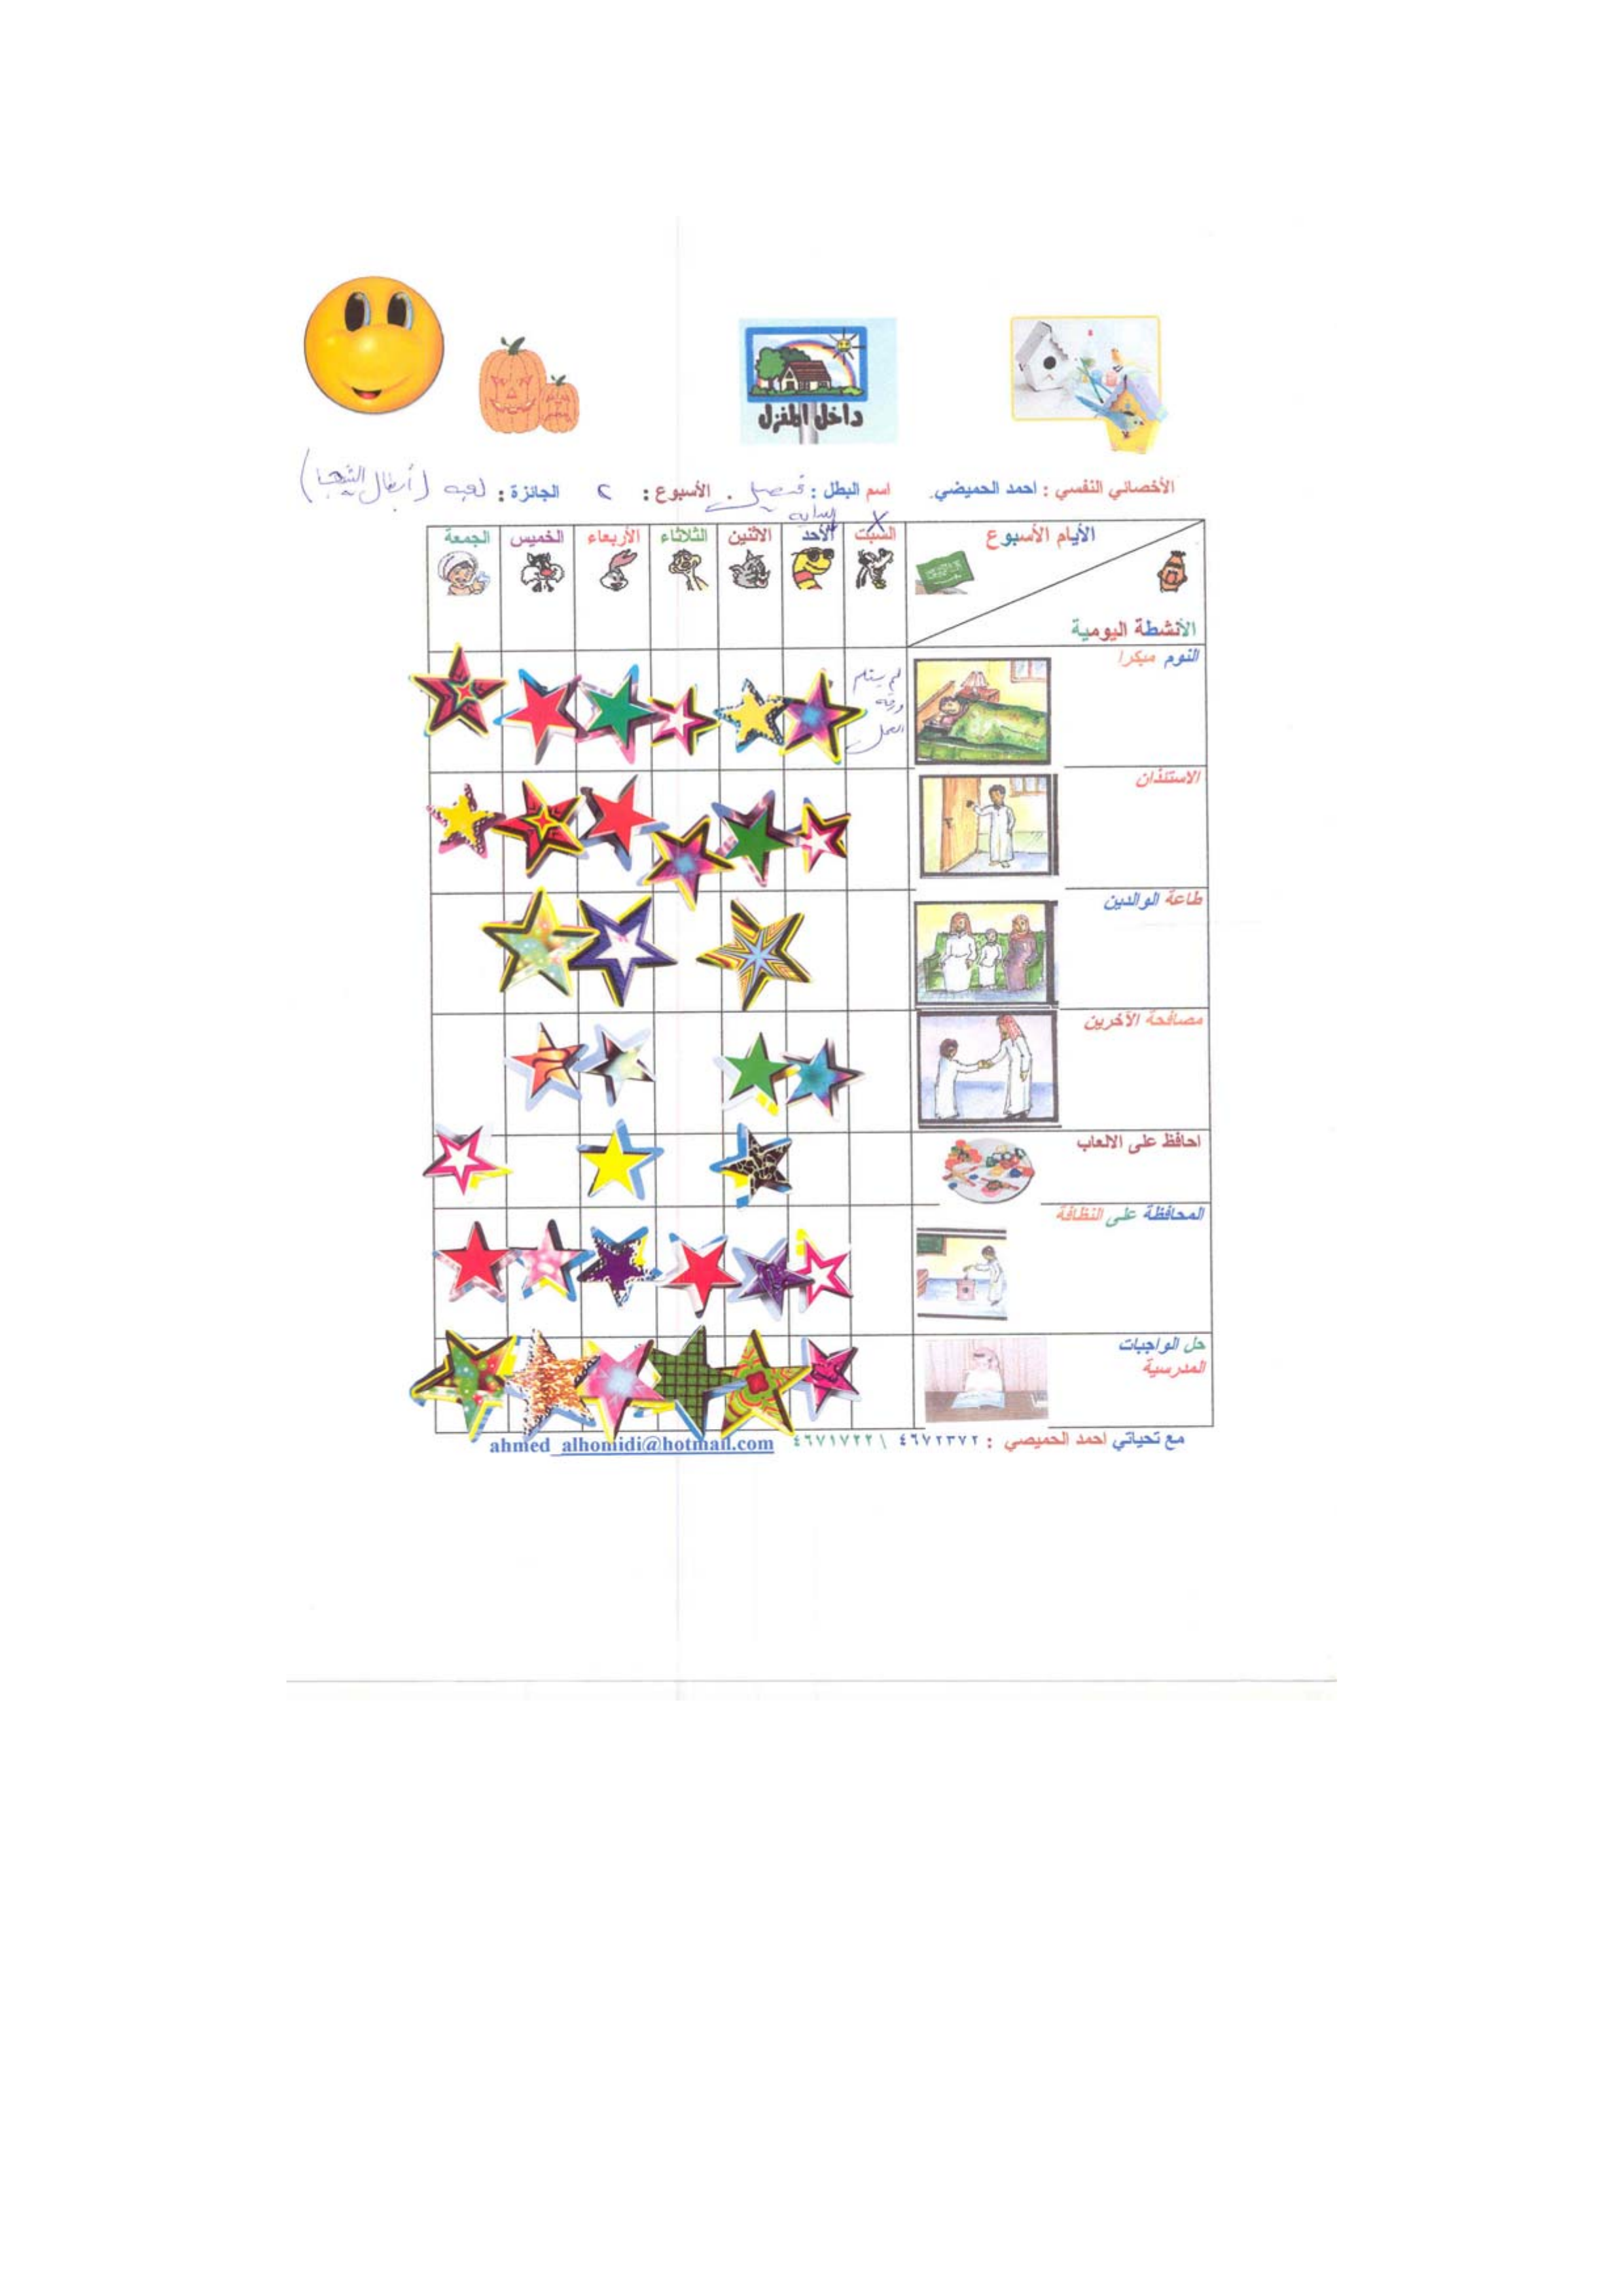 داخل المنزل
الأخصائي النفسي : احمد الحميضي. اسم البطل : فيصل . الأسبوع : ٢ الجائزة : لعبه (أبطال الشجعا)
البدايه X
الأيام الأسبوع السبت الأحد الاثنين الثلاثاء الأربعاء الخميس الجمعة
الأنشطة اليومية
النوم مبكرا
لم يستلم
ورقة
العمل
الاستئذان
طاعة الوالدين
مصافحة الآخرين
احافظ على الالعاب
المحافظة على النظافة
حل الواجبات
المدرسية
مع تحياتي احمد الحميصي : ٤٦٧٢٣٧٢ \ ٤٦٧١٧٢٢ ahmed_alhomidi@hotmail.com